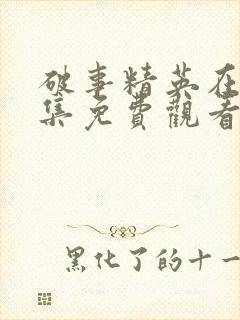 破事精英在
集免費觀看
黑化了的十一